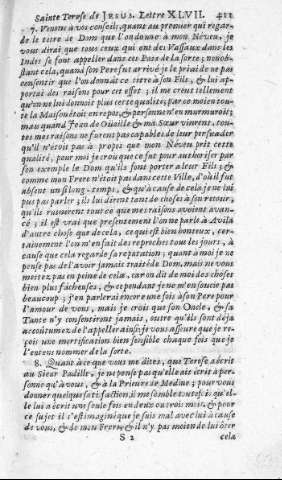 Sainte Terese de JESUS. Lettre XLVII. 411
7. Venons à vos conseils, quant au premier qui regar-
de le titre de Dom que l'on donne à mon Néveu, je
vous dirai que tous ceux qui ont des Vassaux dans les
Indes se font appeller dans ces Païs de la sorte; nonob-
stant cela, quand son Pere fut arrivé je le priai de ne pas
consentir que l'on donnât ce titre à son Fils, & lui ap-
portai des raisons pour cet effet; il me creut tellement
qu'on ne lui donnoit plus cette qualité, par ce moien tou-
te la Maison étoit en repos, & personne n'en murmuroit;
mau quand Jean de Ovaille & ma Sœur vinrent, tou-
tes mes raisons ne furent pas capables de leur persuader
qu'il n'étoit pas à propos que mon Néveu prit cette
qualité, pour moi je croi que ce fut pour authoriser par
son exemple le Dom qu'ils font porter à leur Fils; &
comme mon Frere n'étoit pas dans cette Ville, d'où il fut
absent un si long-temps, & qu'à cause de cela je ne lui
pus pas parler; ils lui dirent tant de choses à son retour,
qu'ils ruinerent tout ce que mes raisons avoient avan-
cé; il est vrai que presentement l'on ne parle à Avila
d'autre chose que de cela, ce qui est bien honteux, cer-
tainement l'on m'en fait des reproches tous les jours, à
cause que cela regarde sa reputation; quant à moi je ne
pense pas de l'avoir jamais traité de Dom, mais ne vous
mettez pas en peine de cela, car on dit de moi des choses
bien plus fâcheuses, & cependant je ne m'en soucie pas
beaucoup; j'en parlerai encore une fois à son Pere pour
l'amour de vous, mais je crois que son Oncle, & sa
Tante n'y consentiront jamais, outre qu'ils sont déja
accoûtumez de l'appeller ainsi: je vous assure que je re-
çois une mortification bien sensible chaque fois que je
l'entens nommer de la sorte.
8. Quant à ce que vous me dites, que Terese a écrit
au Sieur Padille, je ne pense pas qu'elle ait écrit à per-
sonne qu'à vous, & à la Prieure de Medine; pour vous
donner quelque satisfaction, il me semble toutefois qu'el-
le lui a écrit une seule fois en deux ou trois mots, & pour
ce sujet il s'est imaginé que je suis mal avec lui à cause
de vous, & de mon Frere, & il n'y pas moien de lui ôter
S 2 cela